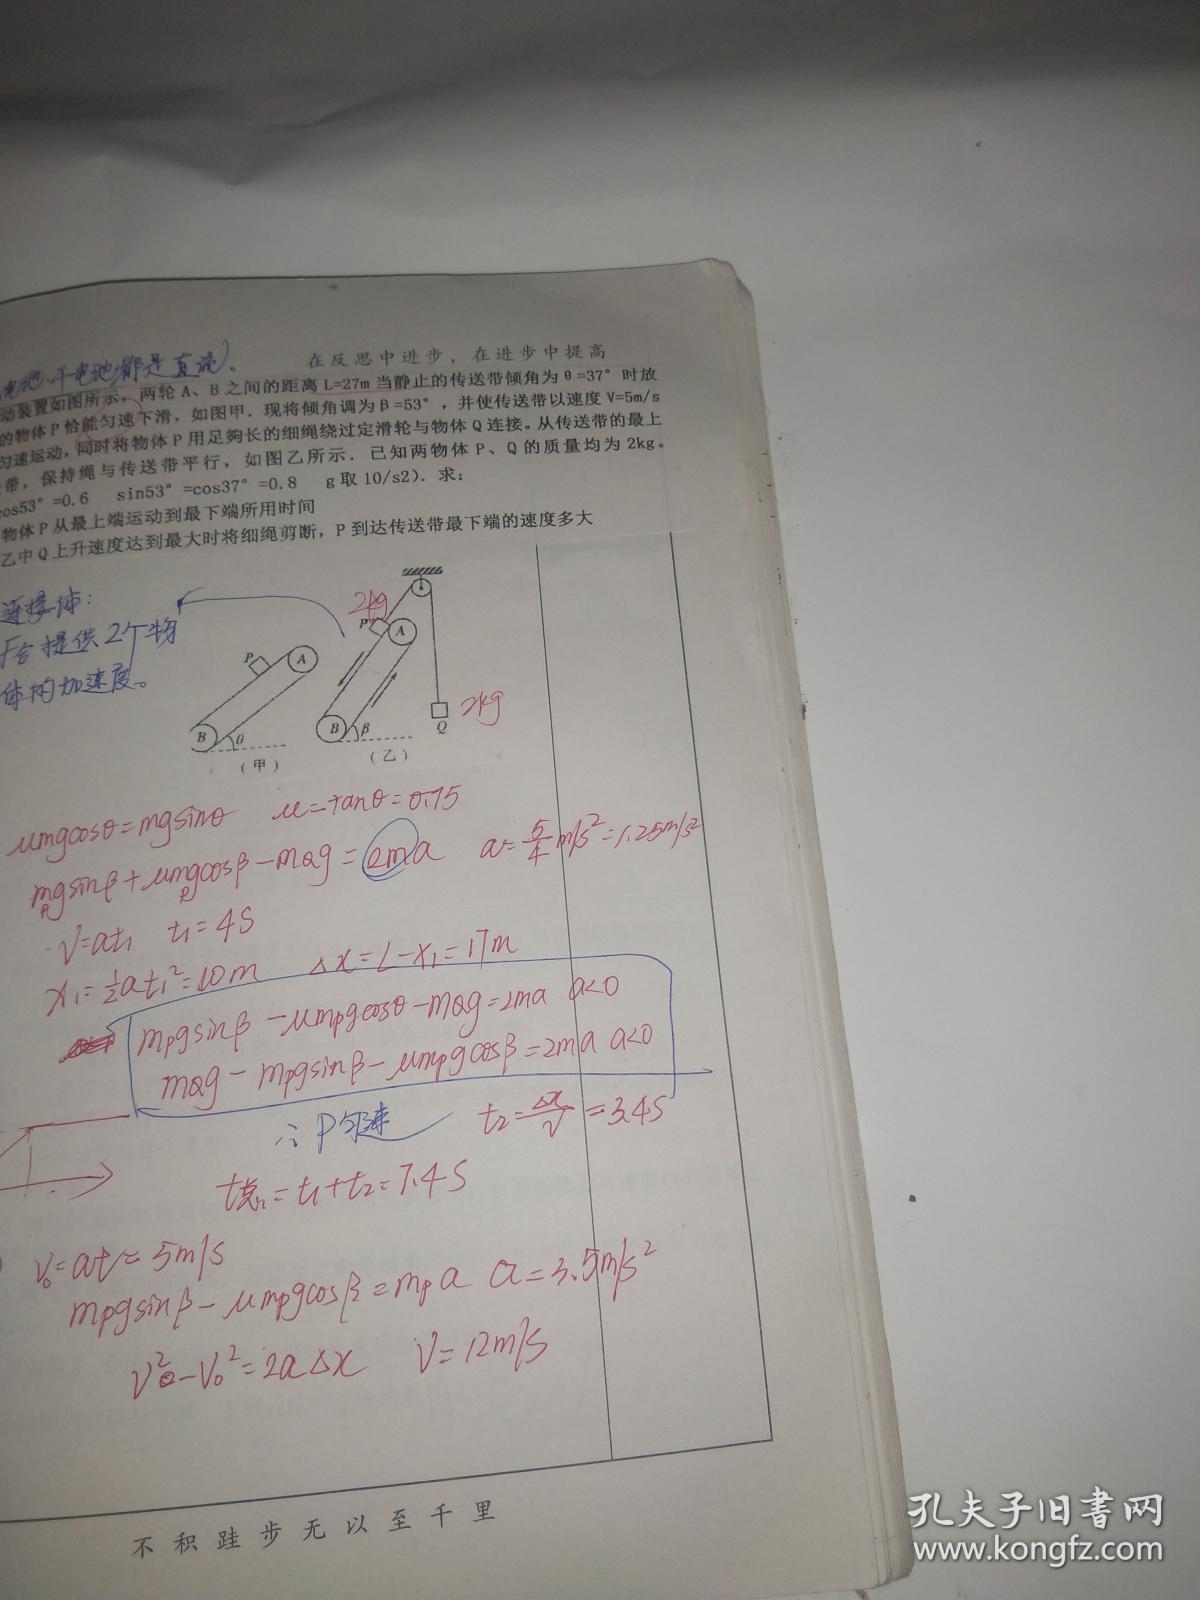 电池.干电池都是直流)。
在反思中进步，在进步中提高
动装置如图所示，两轮A、B之间的距离L=27m当静止的传送带倾角为θ=37°时放
的物体P恰能匀速下滑，如图甲．现将倾角调为β=53°，并使传送带以速度V=5m/s
匀速运动，同时将物体P用足夠长的细绳绕过定滑轮与物体Q连接。从传送带的最上
带，保持绳与传送带平行，如图乙所示．已知两物体P、Q的质量均为2kg。
cos53°=0.6 sin53°=cos37°=0.8 g取10/s2)．求：
物体P从最上端运动到最下端所用时间
乙中Q上升速度达到最大时将细绳剪断，P到达传送带最下端的速度多大
连接体：
F合提供2个物
体的加速度。
P A B θ
(甲)
2kg
P A B β Q
2kg
(乙)
μmgcosθ=mgsinθ μ=tanθ=0.75
mPgsinβ+μmPgcosβ-mQg=2ma a=5/4m/s²=1.25m/s²
V=at₁ t₁=4s
x₁=½at₁²=10m Δx=L-x₁=17m
mPgsinβ-μmPgcosθ-mQg=2ma a<0
mQg-mPgsinβ-μmPgcosβ=2ma a<0
∴P匀速 t₂=Δx/V=3.4s
t总=t₁+t₂=7.4s
V₀=at=5m/s
mPgsinβ-μmPgcosβ=mPa a=3.5m/s²
V²-V₀²=2aΔx V=12m/s
不积跬步无以至千里
孔夫子旧书网
www.kongfz.com